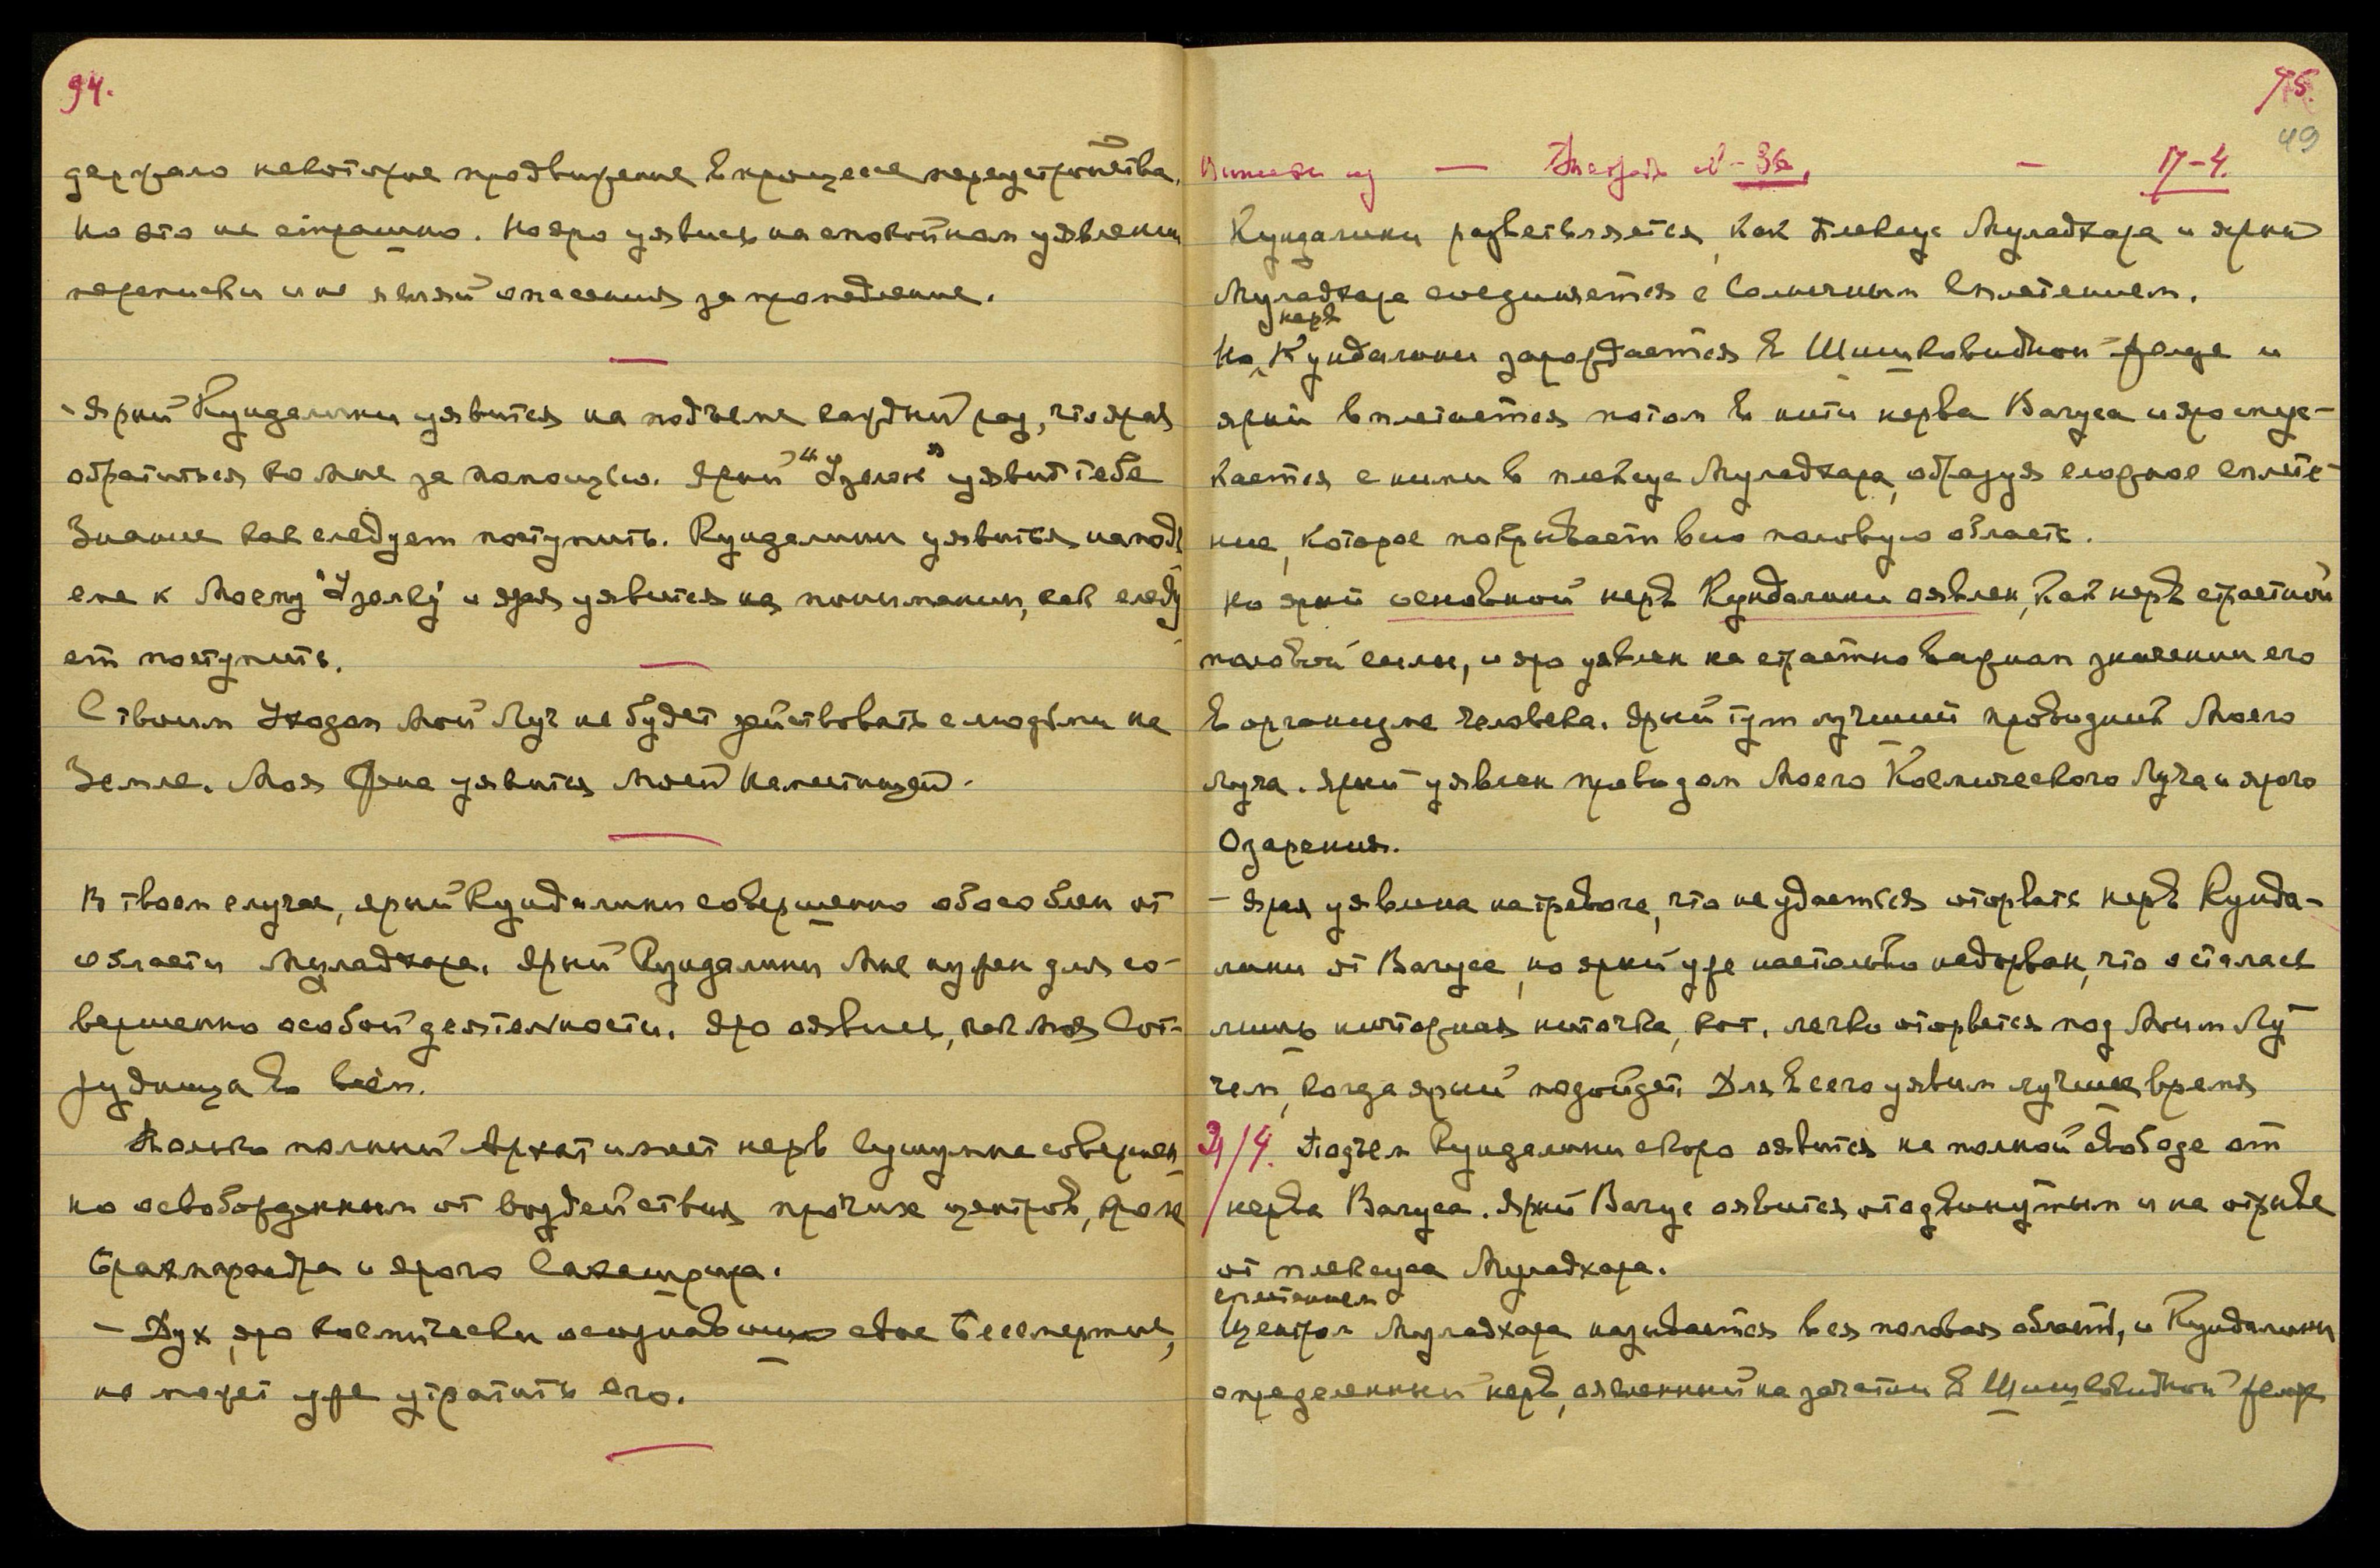 94.
держало некоторое продвижение в процессе переустройства.
Но это не страшно. Но яро уявись на спокойном уявлении
переписки и не являй опасения за промедление.
- Ярый Кундалини уявится на подъеме каждый раз, что ярая
обратиться ко Мне за помощью. Ярый "Узелок" уявит тебе
Знание как следует поступить. Кундалини уявится на подъ
еме к Моему "Узелку" и ярая уявится на понимании, как следу
ет поступить.
С твоим Уходом Мой Луч не будет действовать с людьми на
Земле. Моя Жена уявится Моей Наместницей.
В твоем случае, ярый Кундалини совершенно обособлен от
области Муладхара. Ярый Кундалини Мне нужен для со-
вершенно особой деятельности. Яро оявись, как Моя Сот-
рудница во всём.
Только полный Архат имеет нерв Сушумна совершен
но освобожденным от воздействия прочих центров, кроме
Брахмарандра и ярого Сахасрара.
- Дух, яро космически осознавший свое Бессмертие,
не может уже утратить его.
95.
49
Выписки из — Тетрадь N - 36, — 17-4.
Кундалини разветвляется, как плексус Муладхара и ярый
Муладхара соединяется с Солнечным Сплетением.
нерв
Но Кундалини зарождается в Шишковидной железе и
ярый вплетается потом в нити нерва Вагуса и яро спус-
кается с ними в плексус Муладхара, образуя сложное сплете-
ние, которое покрывает всю половую область.
Но ярый основной нерв Кундалини оявлен, как нерв страстной
половой силы, и яро уявлен на страстно важном значении его
в организме человека. Ярый тут лучший проводник Моего
Луча. Ярый уявлен проводом Моего Космического Луча и ярого
Озарения.
- Ярая уявлена на тревоге, что не удается оторвать нерв Кунда-
лини от Вагуса, но ярый уже настолько надорван, что осталась
лишь ничтожная ниточка, кот. легко оторвется под Моим Лу
чем, когда ярый подойдет. Для всего уявим лучшее время
21/4. Подъем Кундалини скоро оявится на полной свободе от
нерва Вагуса. Ярый Вагус оявится отодвинутым и на отрыве
от плексуса Муладхара.
сплетением
Центром Муладхара называется вся половая область, и Кундалини
определенный нерв, оявленный на зачатии в Шишковидной железе